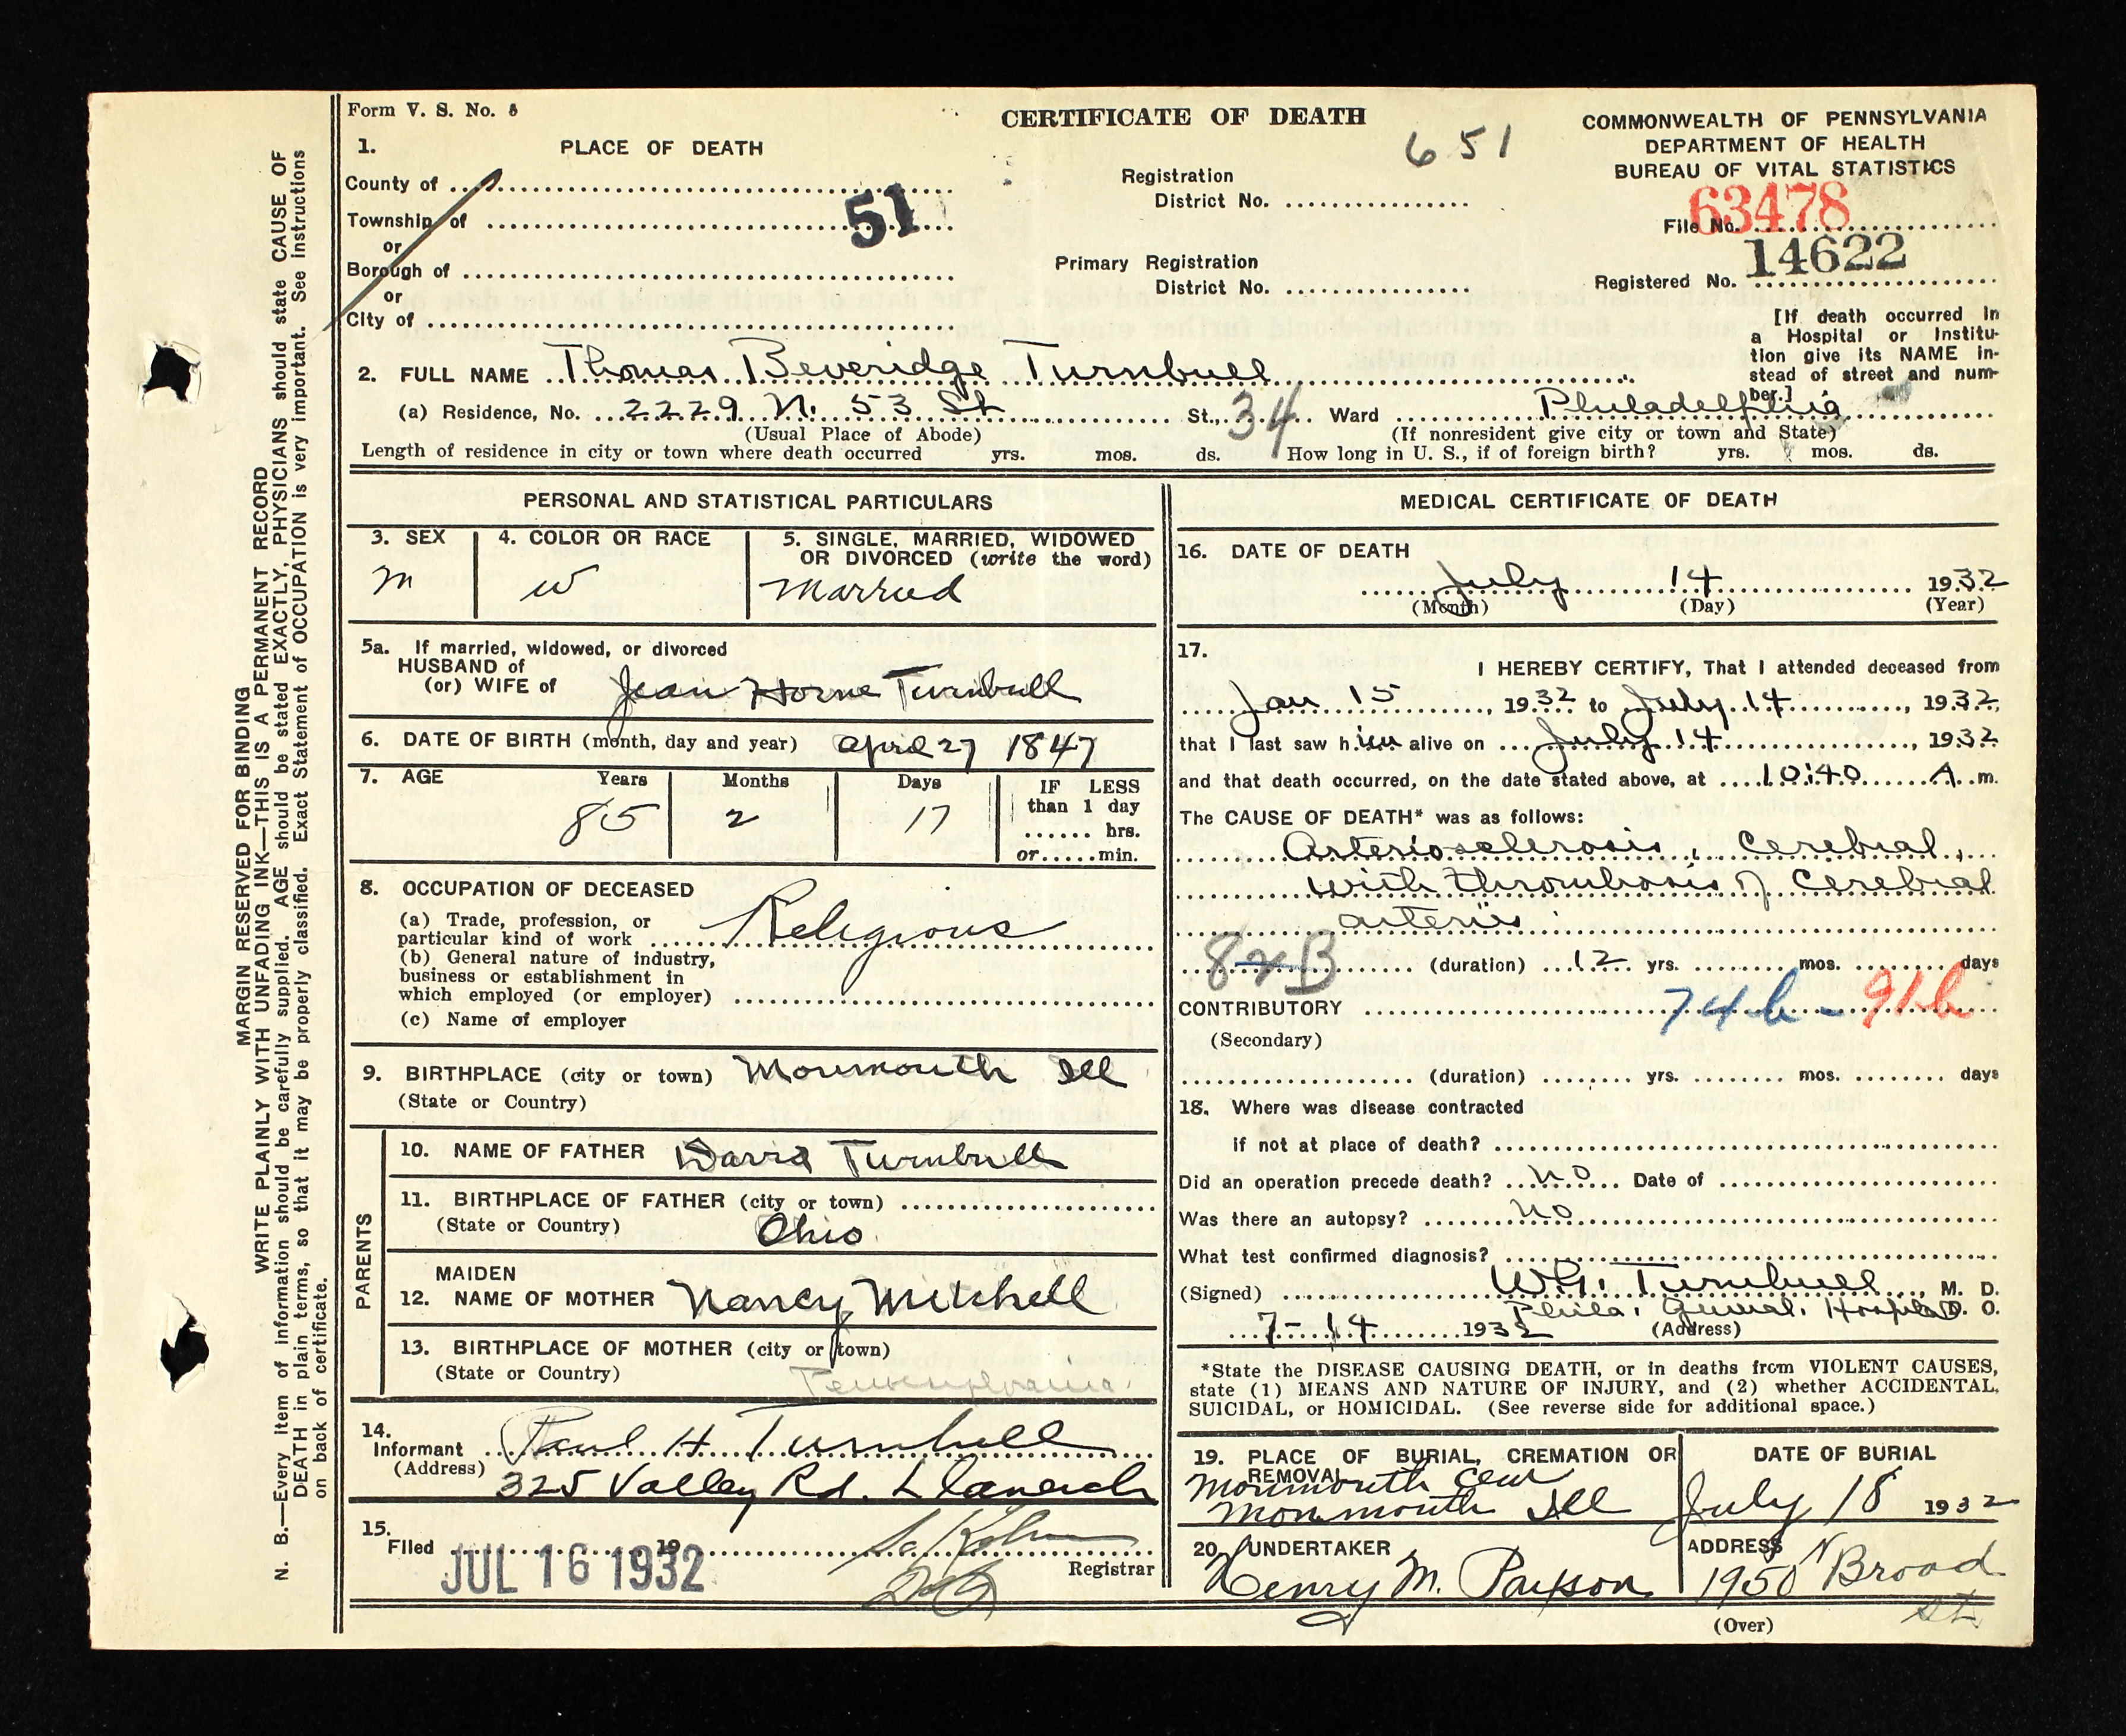 Form V. S. No. 5
CERTIFICATE OF DEATH
COMMONWEALTH OF PENNSYLVANIA
DEPARTMENT OF HEALTH
BUREAU OF VITAL STATISTICS
1. PLACE OF DEATH
651
County of
Registration
District No.
63478
File No.
Township of
51
or
14622
Registered No.
Borough of
Primary Registration
District No.
or
City of
[If death occurred in
a Hospital or Institu-
tion give its NAME in-
stead of street and num-
ber.]
2. FULL NAME Thomas Beveridge Turnbull
(a) Residence, No. 2229 N. 53 St St., 34 Ward Philadelphia
(Usual Place of Abode) (If nonresident give city or town and State)
Length of residence in city or town where death occurred yrs. mos. ds. How long in U. S., if of foreign birth? yrs. mos. ds.
PERSONAL AND STATISTICAL PARTICULARS
3. SEX
M
4. COLOR OR RACE
W
5. SINGLE, MARRIED, WIDOWED
OR DIVORCED (write the word)
Married
5a. If married, widowed, or divorced
HUSBAND of
(or) WIFE of Jean Horne Turnbull
6. DATE OF BIRTH (month, day and year) April 27 1847
7. AGE Years Months Days
85 2 17
IF LESS
than 1 day
hrs.
or min.
8. OCCUPATION OF DECEASED
(a) Trade, profession, or
particular kind of work Religious
(b) General nature of industry,
business or establishment in
which employed (or employer)
(c) Name of employer
9. BIRTHPLACE (city or town) Monmouth Ill
(State or Country)
PARENTS
10. NAME OF FATHER David Turnbull
11. BIRTHPLACE OF FATHER (city or town)
(State or Country) Ohio
MAIDEN
12. NAME OF MOTHER Nancy Mitchell
13. BIRTHPLACE OF MOTHER (city or town)
(State or Country) Pennsylvania
14.
Informant Paul H Turnbull
(Address) 325 Valley Rd. Llanerch
15.
Filed 19
JUL 16 1932
Registrar
MEDICAL CERTIFICATE OF DEATH
16. DATE OF DEATH
July 14 1932
(Month) (Day) (Year)
17.
I HEREBY CERTIFY, That I attended deceased from
Jan 15, 1932 to July 14, 1932,
that I last saw him alive on July 14, 1932
and that death occurred, on the date stated above, at 10:40 A. m.
The CAUSE OF DEATH* was as follows:
Arteriosclerosis, Cerebral,
with thrombosis of cerebral
arteries
(duration) 12 yrs. mos. days
CONTRIBUTORY 74b - 91b
(Secondary)
(duration) yrs. mos. days
18. Where was disease contracted
if not at place of death?
Did an operation precede death? No Date of
Was there an autopsy? No
What test confirmed diagnosis?
(Signed) Turnbull, M. D.
Phila. General Hospital D. O.
7-14 1932 (Address)
*State the DISEASE CAUSING DEATH, or in deaths from VIOLENT CAUSES,
state (1) MEANS AND NATURE OF INJURY, and (2) whether ACCIDENTAL,
SUICIDAL, or HOMICIDAL. (See reverse side for additional space.)
19. PLACE OF BURIAL, CREMATION OR
REMOVAL
Monmouth Cem
Monmouth Ill
DATE OF BURIAL
July 18 1932
20. UNDERTAKER
Henry M. Paxson
ADDRESS
1950 N Broad
St
(Over)
MARGIN RESERVED FOR BINDING
WRITE PLAINLY WITH UNFADING INK—THIS IS A PERMANENT RECORD
N. B.—Every item of information should be carefully supplied. AGE should be stated EXACTLY, PHYSICIANS should state CAUSE OF
DEATH in plain terms, so that it may be properly classified. Exact Statement of OCCUPATION is very important. See Instructions
on back of certificate.